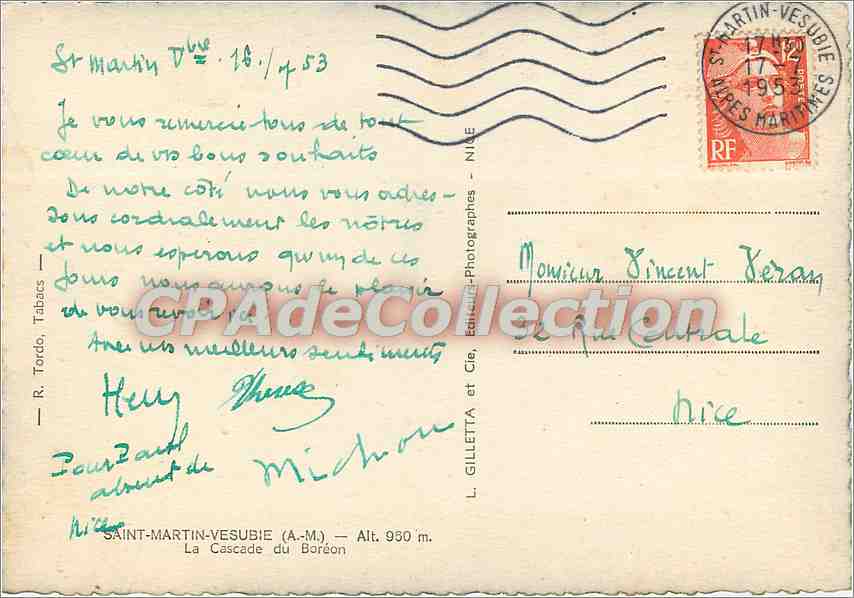 St Martin Vbie. 16/1/53
Je vous remercie tous de tout
cœur de vos bons souhaits
De notre côté nous vous adres-
sons cordialement les nôtres
et nous espérons qu'un de ces
jours nous aurons le plaisir
de vous revoir ici
Avec nos meilleurs sentiments
Henry Therese
Pour Paul
absent de
Nice
Michou
SAINT-MARTIN-VESUBIE (A.-M.) — Alt. 950 m.
La Cascade du Boréon
— R. Tordo, Tabacs —
L. GILLETTA et Cie, Editeurs-Photographes - NICE
ST-MARTIN-VESUBIE
17H30
17 - 1
1953
ALPES MARITIMES
12F
POSTES
RF
Monsieur Vincent Véran
32 Rue Centrale
Nice
CPAdeCollection